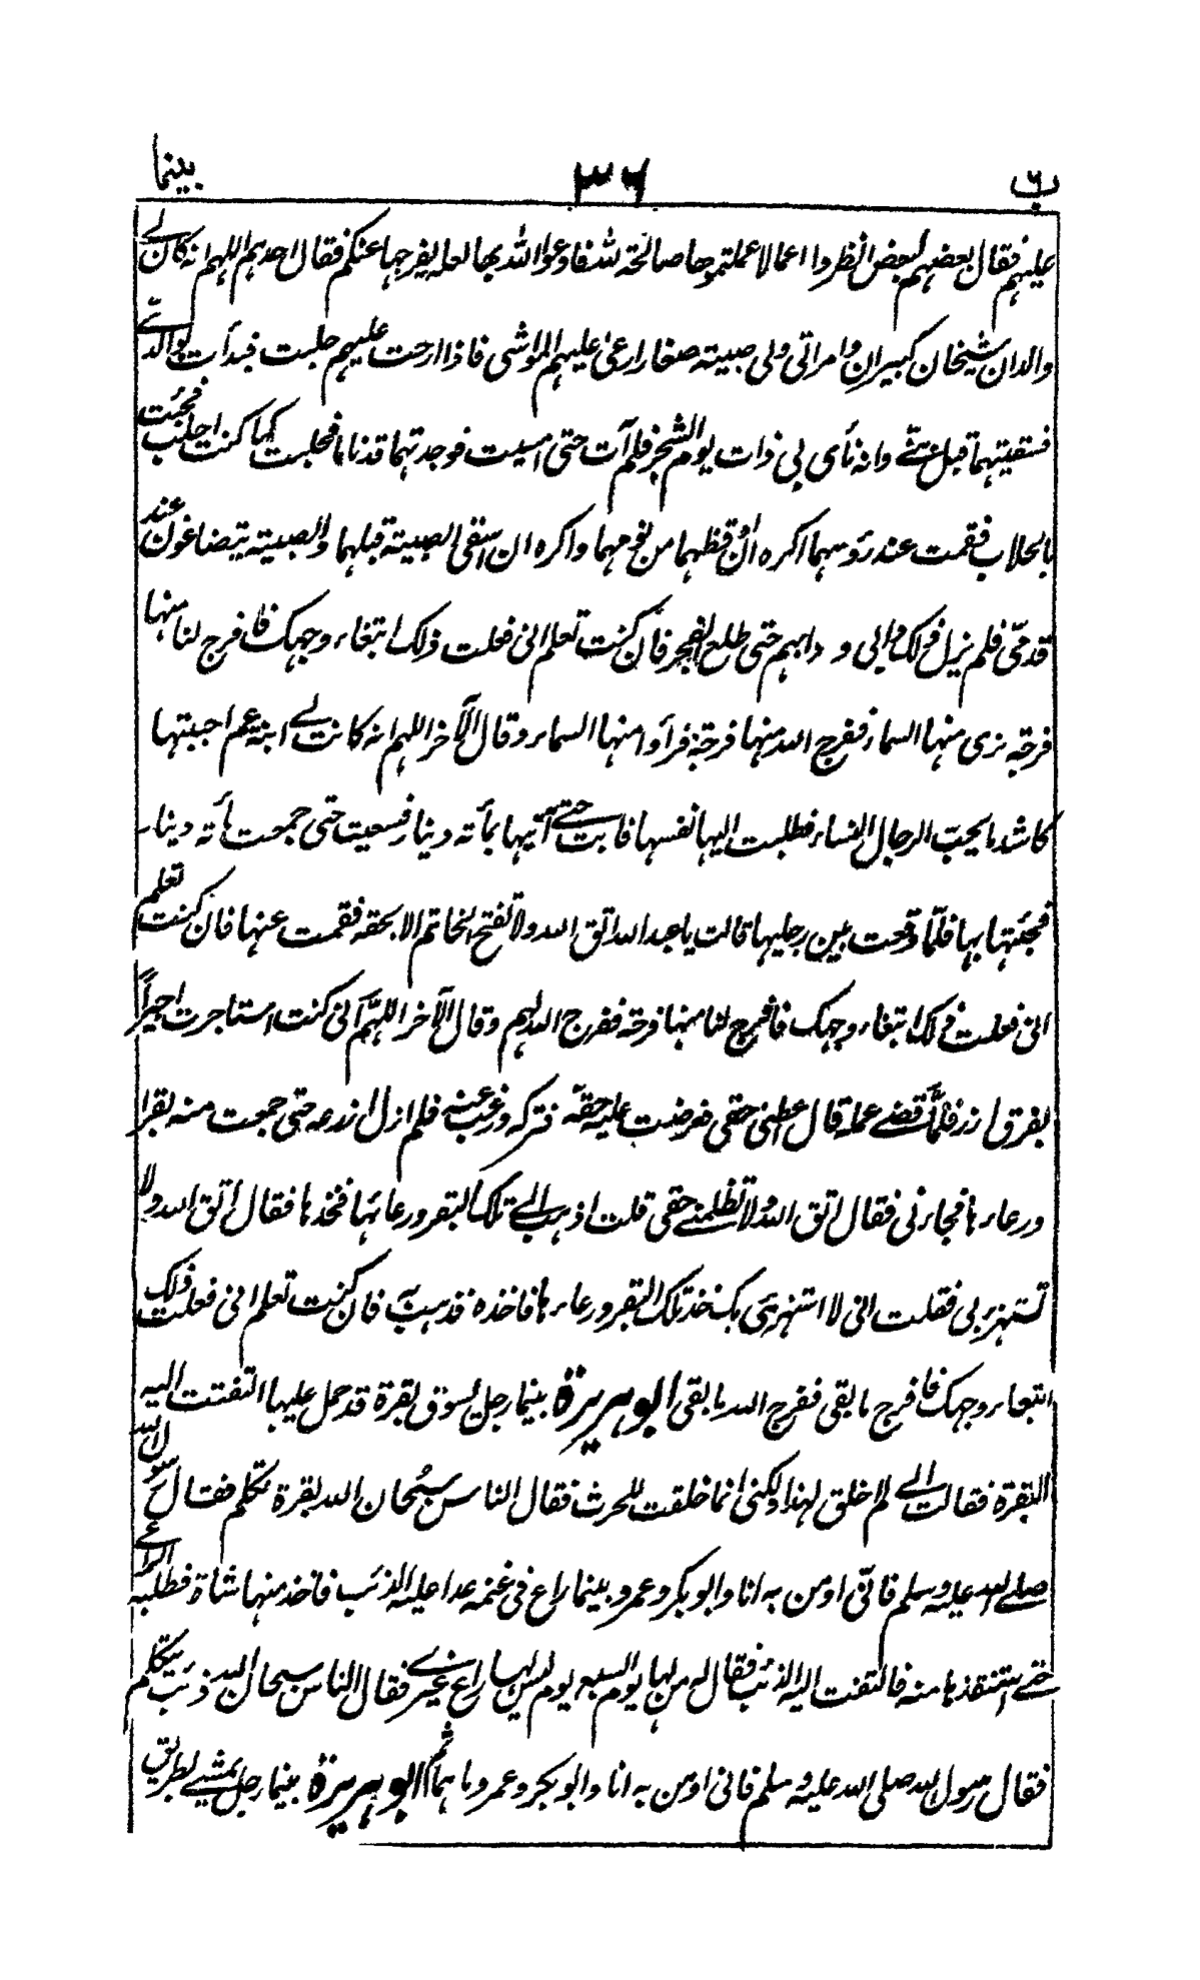 ب ٦ ٣٦ بينما
عليهم فقال بعضهم لبعض انظروا اعمالا عملتموها صالحة لله فادعوا الله بها لعله يفرجها عنكم فقال احدهم اللهم انه كان لى
والدان شيخان كبيران وامراتى ولى صبية صغار ارعى عليهم المواشى فاذا ارحت عليهم حلبت فبدأت بوالدىّ
فسقيتهما قبل بنىّ وانه نأى بى ذات يوم الشجر فلم آت حتى امسيت فوجدتهما قد ناما فحلبت كما كنت احلب فجئت
بالحلاب فقمت عند رؤسهما اكره ان اوقظهما من نومهما واكره ان اسقى الصبية قبلهما والصبية يتضاغون عند
قدمىّ فلم يزل ذلك دابى و دابهم حتى طلع الفجر فان كنت تعلم انى فعلت ذلك ابتغاء وجهك فافرج لنا منها
فرجة نرى منها السماء ففرج الله منها فرجة فرأوا منها السماء وقال الآخر اللهم انه كانت لى ابنة عم احببتها
كاشد ما يحب الرجال النساء فطلبت اليها نفسها فابت حتى آتيها بمأة دينار فسعيت حتى جمعت مأة دينار
فجئتها بها فلمّا وقعت بين رجليها قالت يا عبد الله اتق الله ولا تفتح الخاتم الا بحقه فقمت عنها فان كنت تعلم
انى فعلت ذلك ابتغاء وجهك فافرج لنا منها فرجة ففرج الله لهم وقال الآخر اللهمّ انى كنت استاجرت اجيراً
بفرق ارز فلمّا قضى عمله قال اعطنى حقى فعرضت عليه حقه فتركه ورغب عنه فلم ازل ازرعه حتى جمعت منه بقرا
ورعاءها فجاءنى فقال اتق الله ولا تظلمنى حقى قلت اذهب الى تلك البقر ورعائها فخذها فقال اتق الله ولا
تستهزء بى فقلت انى لا استهزئ بك خذ تلك البقر ورعاءها فاخذه فذهب به فان كنت تعلم انى فعلت ذلك
ابتغاء وجهك فافرج ما بقى ففرج الله ما بقى ابو هريرة بينما رجل يسوق بقرة قد حمل عليها التفتت اليه
البقرة فقالت انى لم اخلق لهذا ولكنى انما خلقت للحرث فقال الناس سبحان الله بقرة تكلم فقال رسول الله
صلى الله عليه وسلم فانّى اومن به انا وابو بكر وعمر وبينما راع فى غنمه عدا عليه الذئب فاخذ منها شاة فطلبه الراعى
حتى استنقذها منه فالتفت اليه الذئب فقال له من لها يوم السبع يوم ليس لها راع غيرى فقال الناس سبحان الله ذئب يتكلم
فقال رسول الله صلى الله عليه وسلم فانى اومن به انا وابو بكر وعمر وما هما ثم ابو هريرة بينما رجل يمشى بطريق